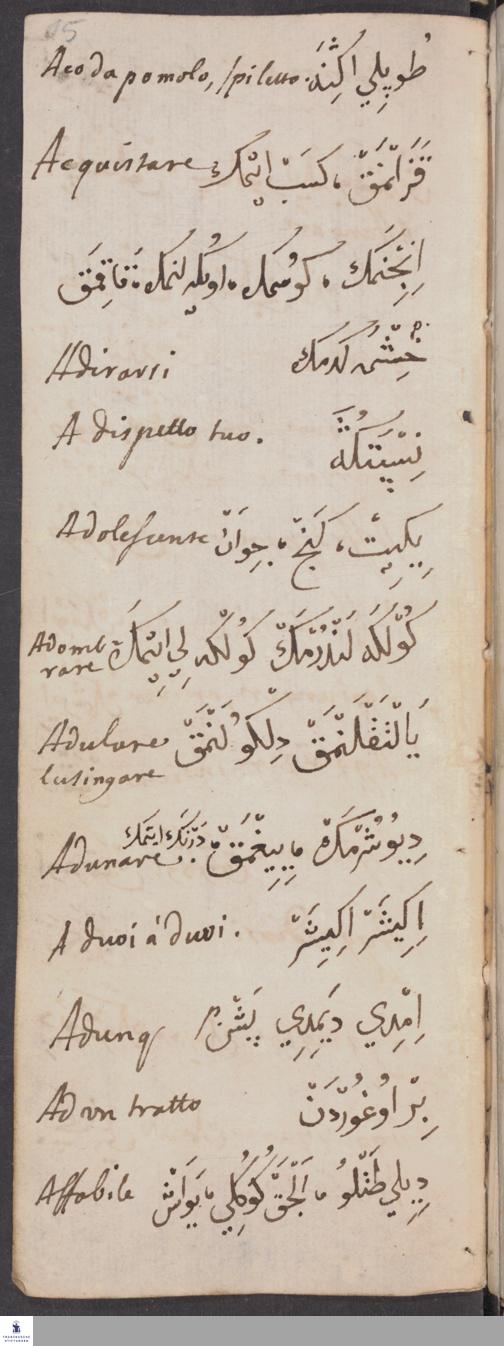 15
Aco da pomolo, spiletto. طُوپِلِي اكِنَه
Acquistare قَزَانْمَقْ ، كَسَبْ ايتْمَكْ
اِنْجِنْمَكْ ، كوسمك ، اوكله لنمك ، قاقِمَقْ
Adirarsi خِشْم كدمك
A dispetto tuo. نِسْپَتَكَه
Adolescente يِكِيتْ ، كَنْجْ ، جِوَانْ
Adomb=
rare كُولْكَه لَنْدُرْمَكْ كولكه لِي ايتْمَكْ
Adulare
lusingare يَالْتَقْلَنْمَقْ دِلْكولَنْمَقْ
Adunare دِيُوشُرْمَكْ ، يِيغْمَقْ ، دَرْنَك ايتمك
A duoi à duoi. اِكِيشَرْ اِكِيشَرْ
Adunq اِمْدِي دِيَمِدِي پَسْ p
Ad un tratto بِرْ اُوغُورْدَنْ
Affabile دِيلِي طَتْلُو ، اَلْچَقْ كُوكُلِي ، يَوَاشْ
FRANCKESCHE STIFTUNGEN